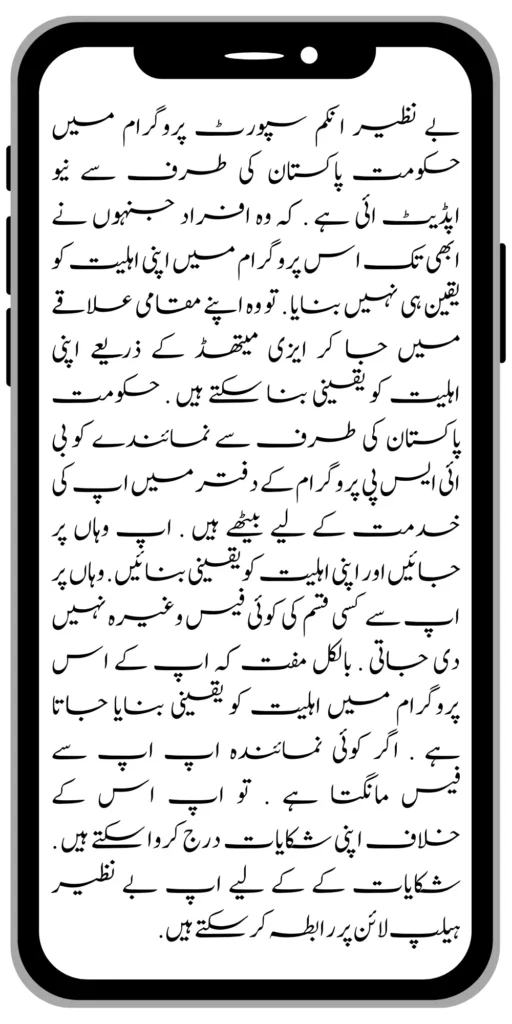 بے نظیر انکم سپورٹ پروگرام میں
حکومت پاکستان کی طرف سے نیو
اپڈیٹ ائی ہے . کہ وہ افراد جنہوں نے
ابھی تک اس پروگرام میں اپنی اہلیت کو
یقین ہی نہیں بنایا. تو وہ اپنے مقامی علاقے
میں جا کر ایزی میتھڈ کے ذریعے اپنی
اہلیت کو یقینی بنا سکتے ہیں . حکومت
پاکستان کی طرف سے نمائندے کو بی
ائی ایس پی پروگرام کے دفتر میں اپ کی
خدمت کے لیے بیٹھے ہیں . اپ وہاں پر
جائیں اور اپنی اہلیت کو یقینی بنائیں. وہاں پر
اپ سے کسی قسم کی کوئی فیس وغیرہ نہیں
دی جاتی . بالکل مفت کہ اپ کے اس
پروگرام میں اہلیت کو یقینی بنایا جاتا
ہے . اگر کوئی نمائندہ اپ اپ سے
فیس مانگتا ہے . تو اپ اس کے
خلاف اپنی شکایات درج کروا سکتے ہیں.
شکایات کے کے لیے اپ بے نظیر
ہیلپ لائن پر رابطہ کر سکتے ہیں.